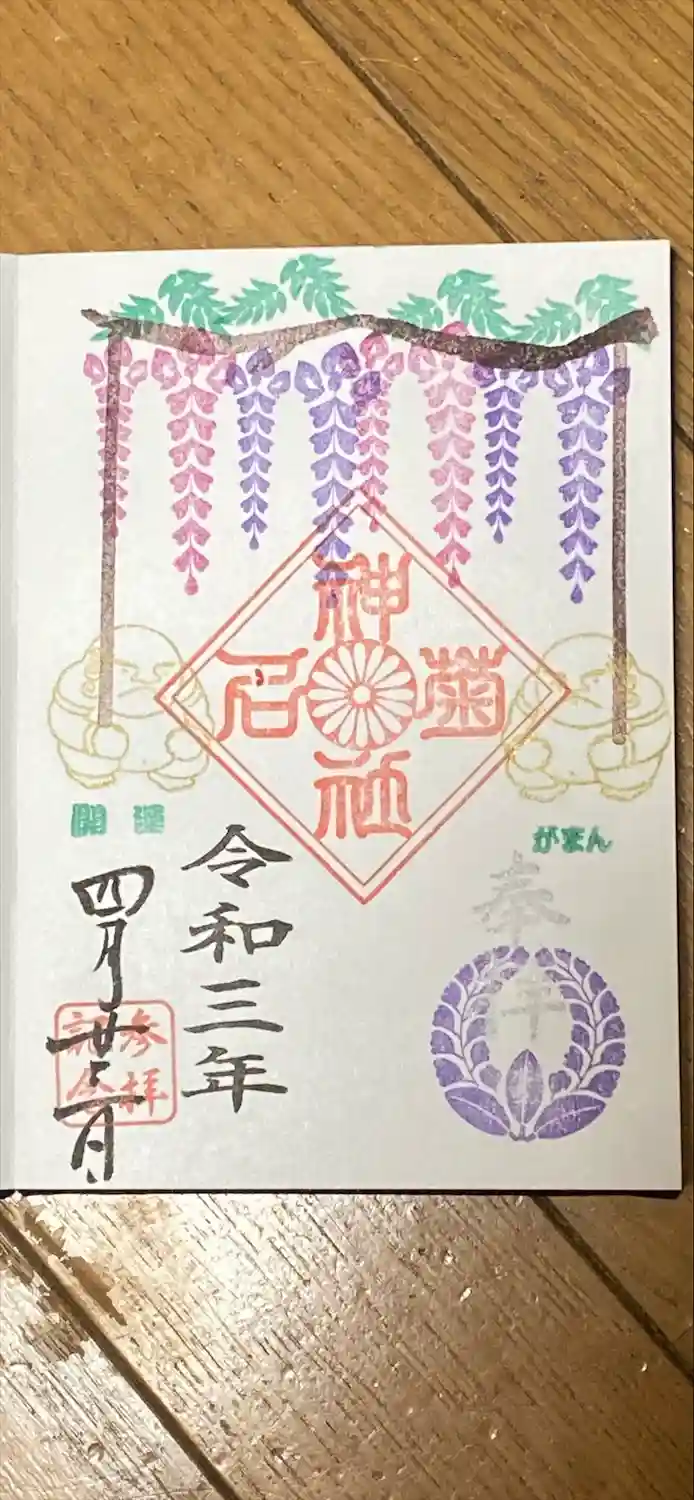 菊名
神社
がまん
開運
奉拝
令和三年
四月廿二日
参拝
記念